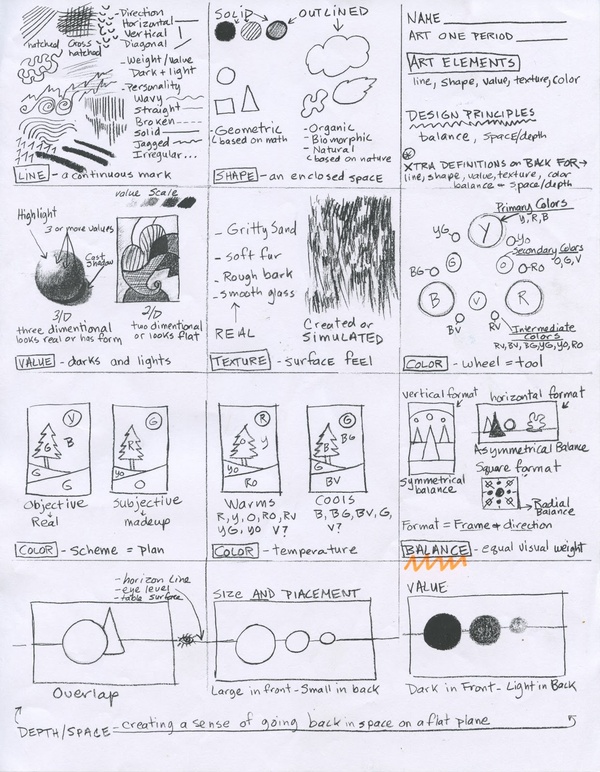 hatched
Cross hatched
Direction
Horizontal
Vertical
Diagonal
- Weight/value
Dark + light
- Personality
Wavy
Straight
Broken
Solid
Jagged
Irregular...
LINE - a continuous mark
SOLID
OUTLINED
- Geometric
(based on math
- Organic
- Biomorphic
- Natural
(based on nature
SHAPE - an enclosed space
NAME
ART ONE PERIOD
ART ELEMENTS
line, shape, value, texture, color
DESIGN PRINCIPLES
balance, space/depth
XTRA DEFINITIONS on BACK FOR →
line, shape, value, texture, color
balance + space/depth
value Scale
Highlight
3 or more values
Cast Shadow
3/D
three dimentional
looks real or has form
2/D
two dimentional
or looks flat
VALUE - darks and lights
- Gritty Sand
- soft fur
- Rough bark
- smooth glass
REAL
Created or
SIMULATED
TEXTURE - surface feel
Primary Colors
Y, R, B
Y
YG
YO
Secondary Colors
O, G, V
G
O
BG
RO
B
V
R
BV
RV
Intermediate Colors
RV, BV, BG, YG, YO, RO
COLOR - wheel = tool
V
B
G
G
Objective
Real
G
R
YO
O
Subjective
madeup
COLOR - scheme = plan
R
O
Y
YO
RO
Warms
R, Y, O, RO, RV
YG, YO V?
G
B
BG
G
BV
Cools
B, BG, BV, G,
V?
COLOR - temperature
vertical format
horizontal format
Asymmetrical Balance
Square format
symmetrical
balance
Radial
Balance
Format = Frame + direction
BALANCE - equal visual weight
- horizon Line
- eye level
- table surface
Overlap
SIZE AND PLACEMENT
Large in front - Small in back
VALUE
Dark in Front - Light in Back
DEPTH/SPACE - creating a sense of going back in space on a flat plane